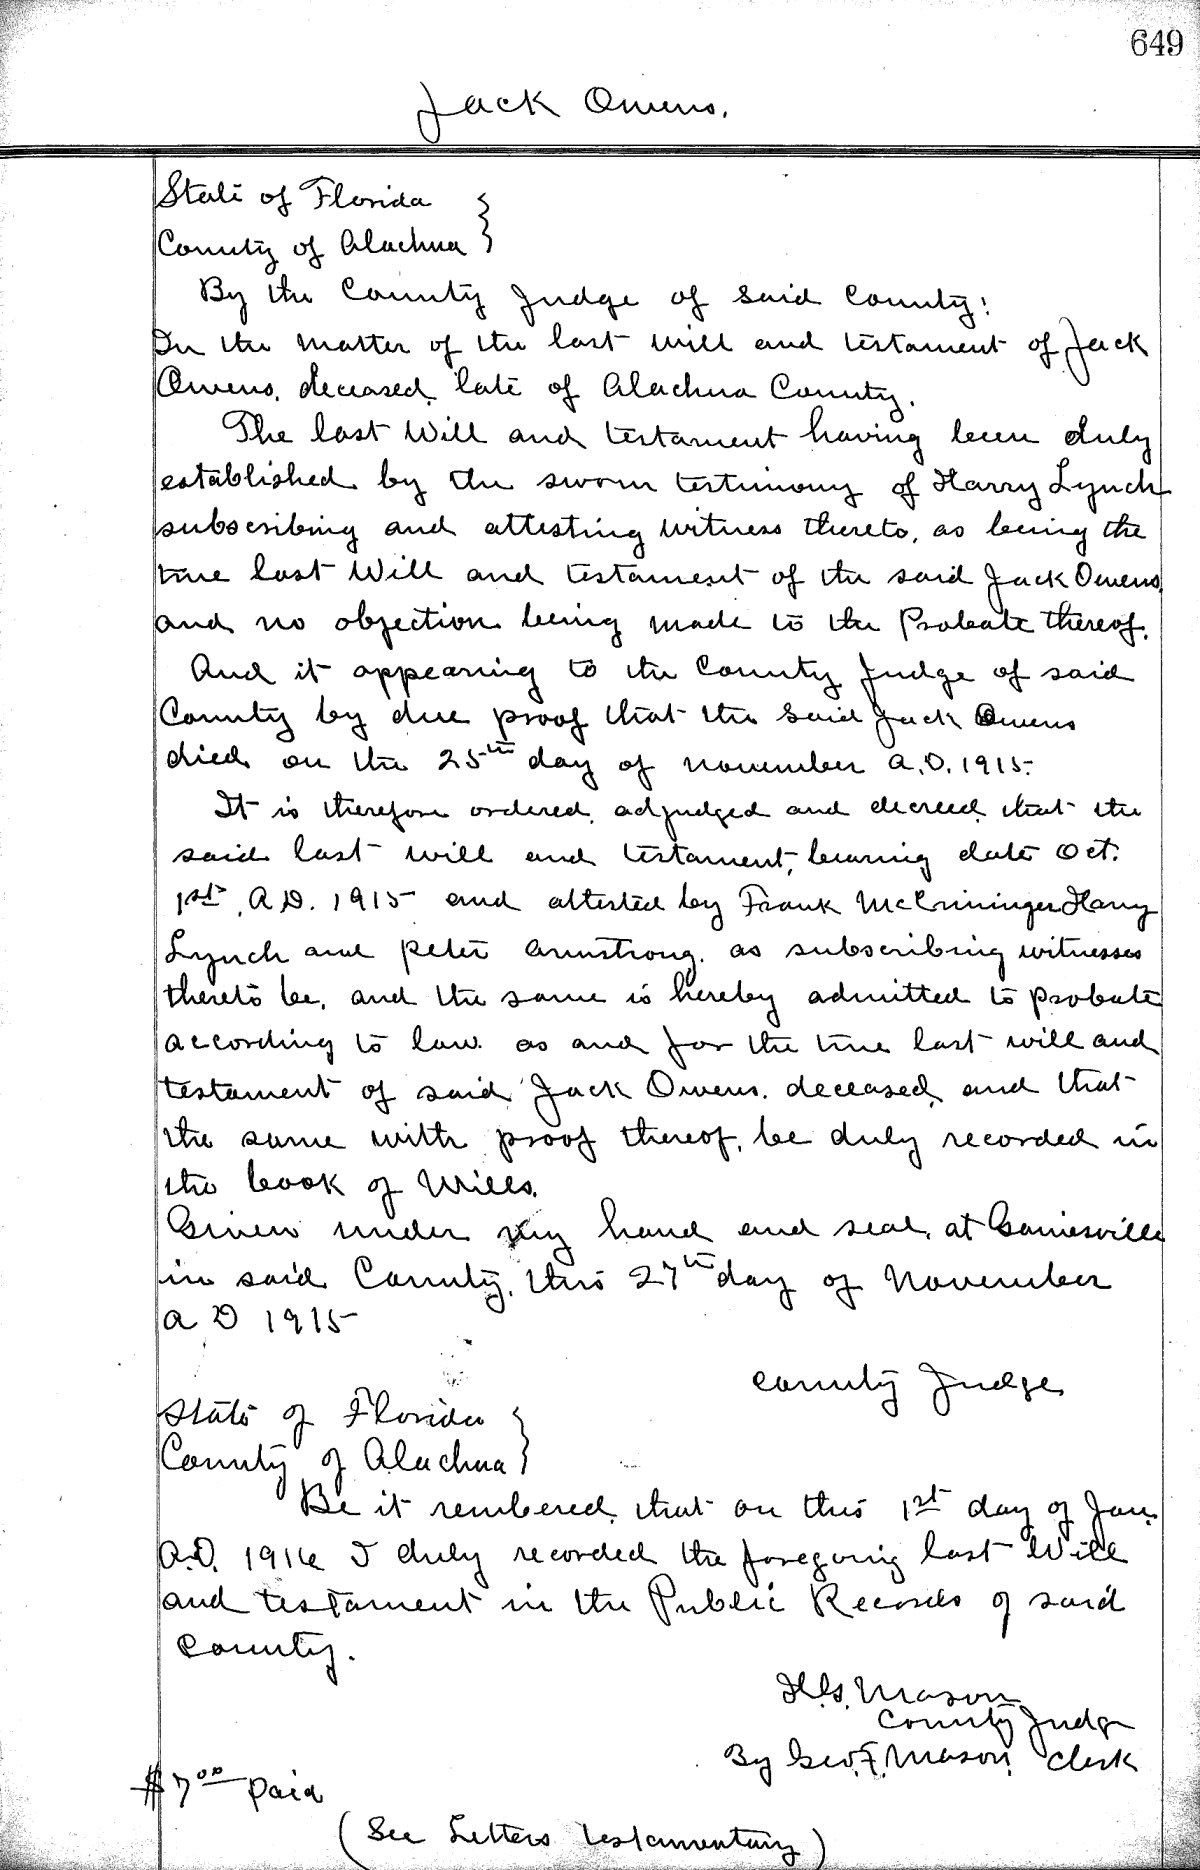 649
Jack Owens.
State of Florida }
County of Alachua }
By the County Judge of said County:
In the matter of the last will and testament of Jack
Owens, deceased, late of Alachua County.
The last Will and testament having been duly
established by the sworn testimony of Harry Lynch
subscribing and attesting witness thereto, as being the
true last Will and testament of the said Jack Owens,
and no objection being made to the Probate thereof.
And it appearing to the County Judge of said
County by due proof that the said Jack Owens
died on the 25th day of november A.D. 1915.
It is therefore ordered, adjudged and decreed, that the
said last will and testament, bearing date Oct.
1st, A.D. 1915 and attested by Frank Harry
Lynch and Peter Armstrong, as subscribing witnesses
thereto be, and the same is hereby admitted to probate
according to law as and for the true last will and
testament of said Jack Owens, deceased, and that
the same with proof thereof, be duly recorded in
the book of Wills.
Given under my hand and seal, at Gainesville
in said County, this 27th day of November
A D 1915
County Judge
State of Florida }
County of Alachua }
Be it rembered, that on this 1st day of Jan.
A.D. 1916 I duly recorded the foregoing last Will
and testament in the Public Records of said
County.
H.G. Mason
County Judge
By Geo. F. Mason Clerk
$7 00 paid
(See Letters testamentary)